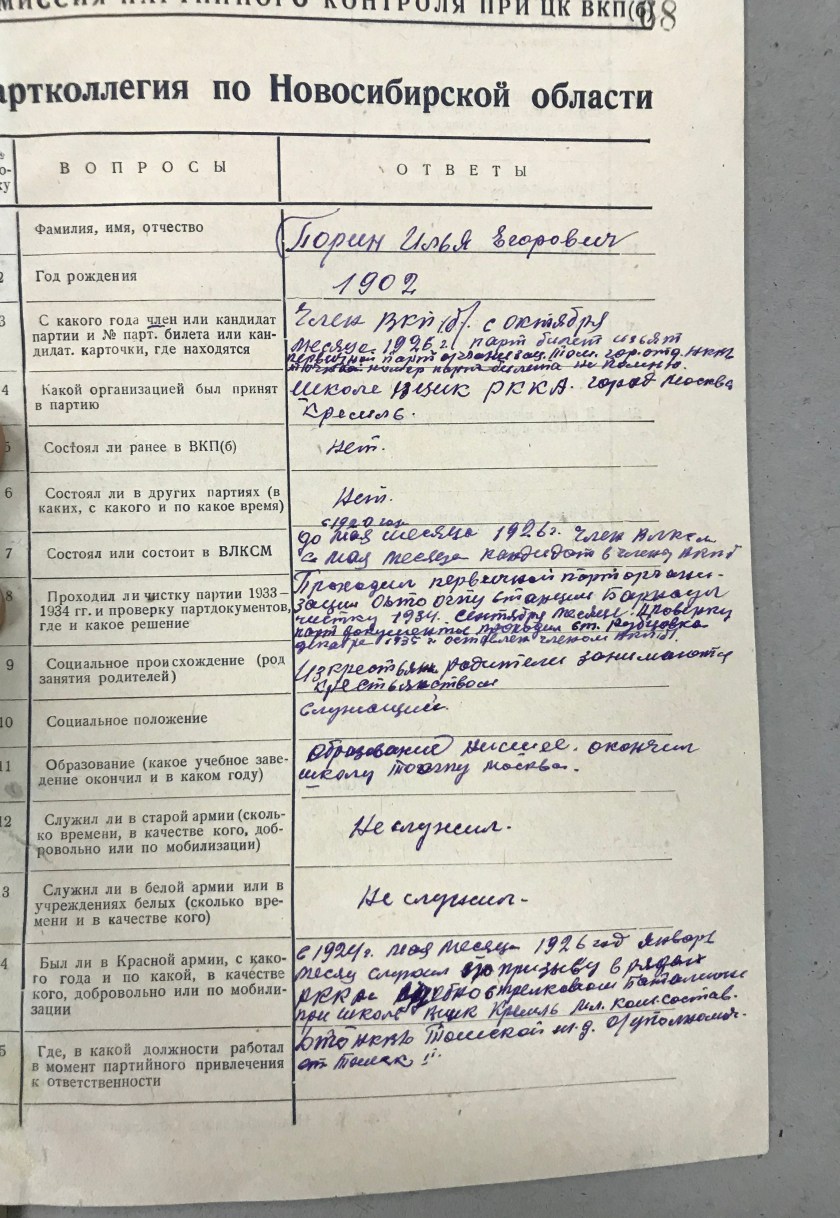 МИССИЯ ПАРТИЙНОГО КОНТРОЛЯ ПРИ ЦК ВКП(б)
98
артколлегия по Новосибирской области
ВОПРОСЫ ОТВЕТЫ
Фамилия, имя, отчество
Порин Илья Егорович
2 Год рождения
1902
3 С какого года член или кандидат
партии и № парт. билета или кан-
дидат. карточки, где находятся
Член ВКП(б). с октября
месяца 1926 г. парт билет изъят
первичной парт организац. Том. гор.отд. НКВД
номер парт билета не помню.
4 Какой организацией был принят
в партию
Школе ВЦИК РККА. город Москва
Кремль.
5 Состоял ли ранее в ВКП(б)
Нет.
6 Состоял ли в других партиях (в
каких, с какого и по какое время)
Нет.
7 Состоял или состоит в ВЛКСМ
с 1920 год
до мая месяца 1926 г. член влксм
с мая месяца кандидат в члены ВКПб
8 Проходил ли чистку партии 1933-
1934 гг. и проверку партдокументов,
где и какое решение
Проходил первичной парторгани-
зации станции Барнаул
чистку 1934. сентября месяце. Проверку
парт документы проходил ст. Рубцовка
декабре 1935 г. оставлен членом ВКПб.
9 Социальное происхождение (род
занятия родителей)
Из крестьян родители занимаются
крестьянством
10 Социальное положение
Служащий.
11 Образование (какое учебное заве-
дение окончил и в каком году)
Образование низшее. окончил
школу Москва.
12 Служил ли в старой армии (сколь-
ко времени, в качестве кого, доб-
ровольно или по мобилизации)
Не служил.
3 Служил ли в белой армии или в
учреждениях белых (сколько вре-
мени и в качестве кого)
Не служил.
4 Был ли в Красной армии, с како-
го года и по какой, в качестве
кого, добровольно или по мобили-
зации
с 1924 г. мая месяца 1926 год январь
месяц служил по призыву в рядах
РККА стрелковом Баталионе
при школе ВЦИК Кремль мл. комсостав.
5 Где, в какой должности работал
в момент партийного привлечения
к ответственности
НКВД Томской ж.д. о/уполномоч.
ст Томск II.